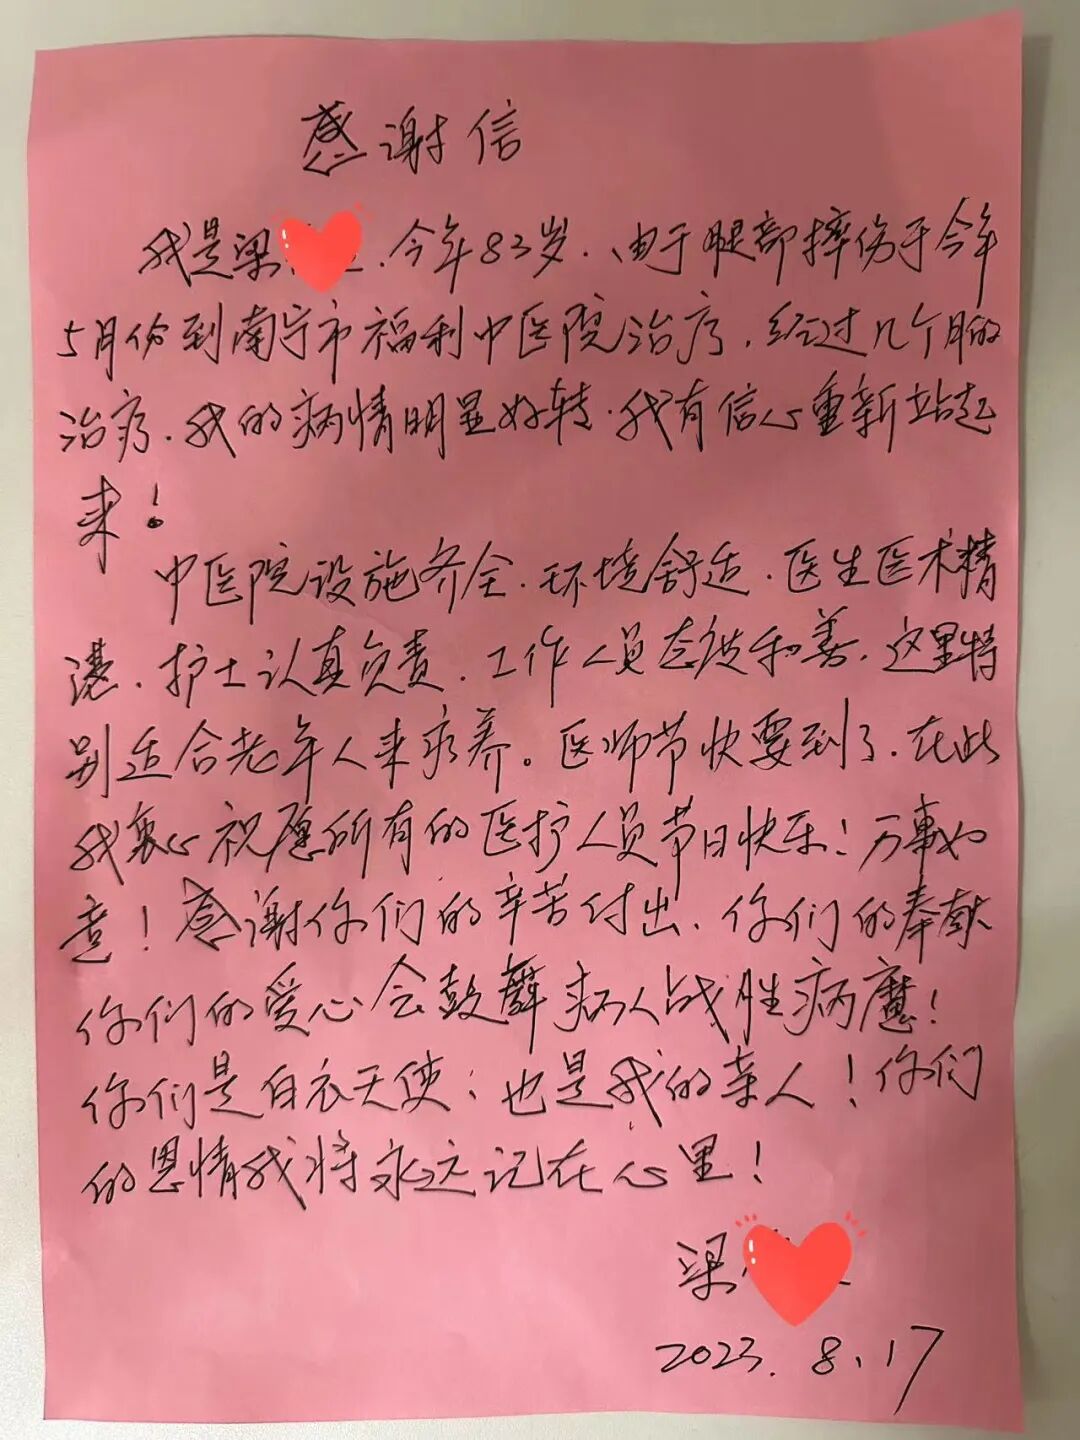 感谢信
我是梁 . 今年83岁 . 由于腿部摔伤于今年
5月份到南宁市福利中医院治疗 . 经过几个月的
治疗 . 我的病情明显好转 . 我有信心重新站起
来!
中医院设施齐全 . 环境舒适 . 医生医术精
湛 . 护士认真负责 . 工作人员态度和善 . 这里特
别适合老年人来疗养。医师节快要到了 . 在此
我衷心祝愿所有的医护人员节日快乐!万事如
意!感谢你们的辛苦付出、你们的奉献
你们的爱心会鼓舞病人战胜病魔!
你们是白衣天使;也是我的亲人!你们
的恩情我将永远记在心里!
梁
2023.8.17